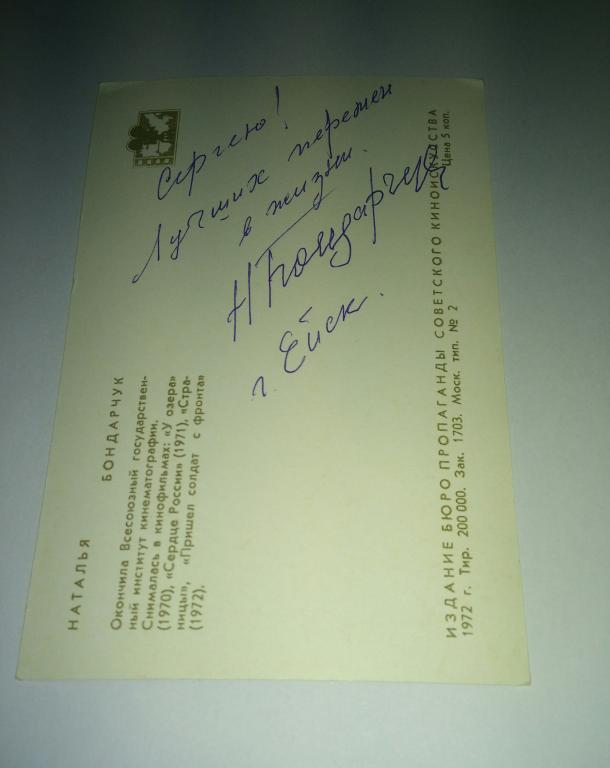 НАТАЛЬЯ
БОНДАРЧУК
Окончила Всесоюзный государствен-
ный институт кинематографии.
Снималась в кинофильмах: «У озера»
(1970), «Сердце России» (1971), «Стра-
ницы», «Пришел солдат с фронта»
(1972).
Сергею!
Лучших перемен
в жизни.
Н Бондарчук
г. Ейск.
ИЗДАНИЕ БЮРО ПРОПАГАНДЫ СОВЕТСКОГО КИНОИСКУССТВА
1972 г. Тир. 200 000. Зак. 1703. Моск. тип. № 2 Цена 5 коп.